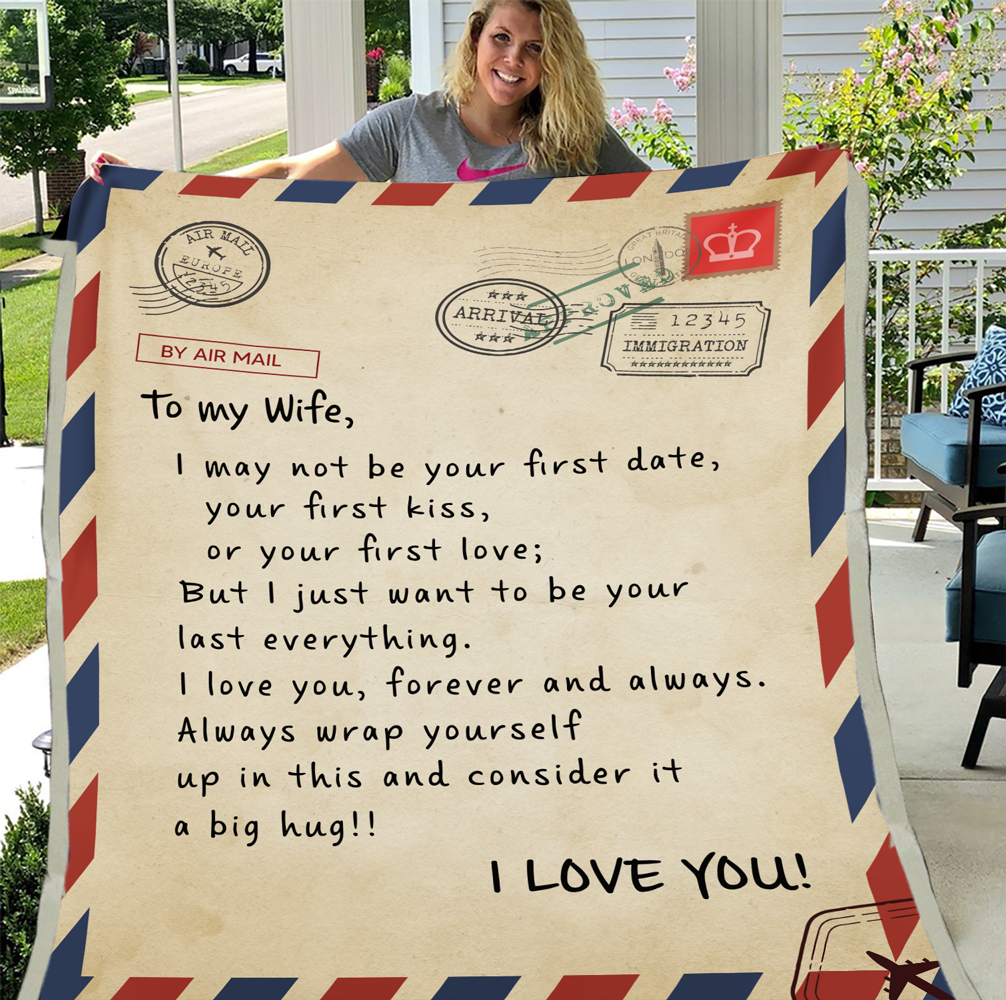 AIR MAIL
EUROPE
12345
GREAT BRITAIN
LONDON
ARRIVAL
APPROVED
12345
IMMIGRATION
BY AIR MAIL
To my Wife,
I may not be your first date,
your first kiss,
or your first love;
But I just want to be your
last everything.
I love you, forever and always.
Always wrap yourself
up in this and consider it
a big hug!!
I LOVE YOU!